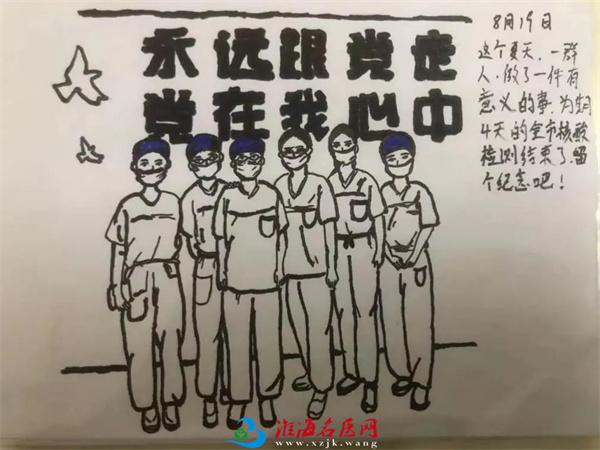 永远跟党走
党在我心中
8月19日
这个夏天,一群
人,做了一件有
意义的事,为期
4天的全市核酸
检测结束了,留
个纪念吧!
淮海名医网
www.xzjk.wang